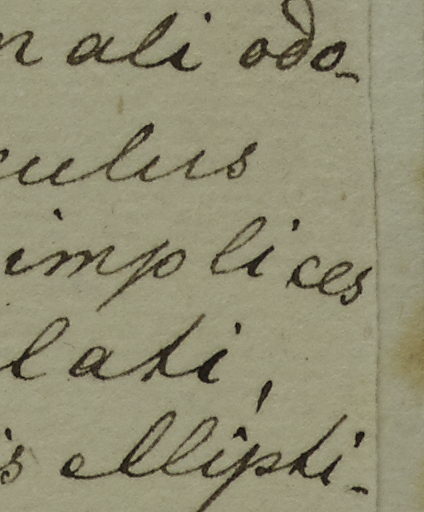 nali odo-
culus
implices
lati,
is ellipti-